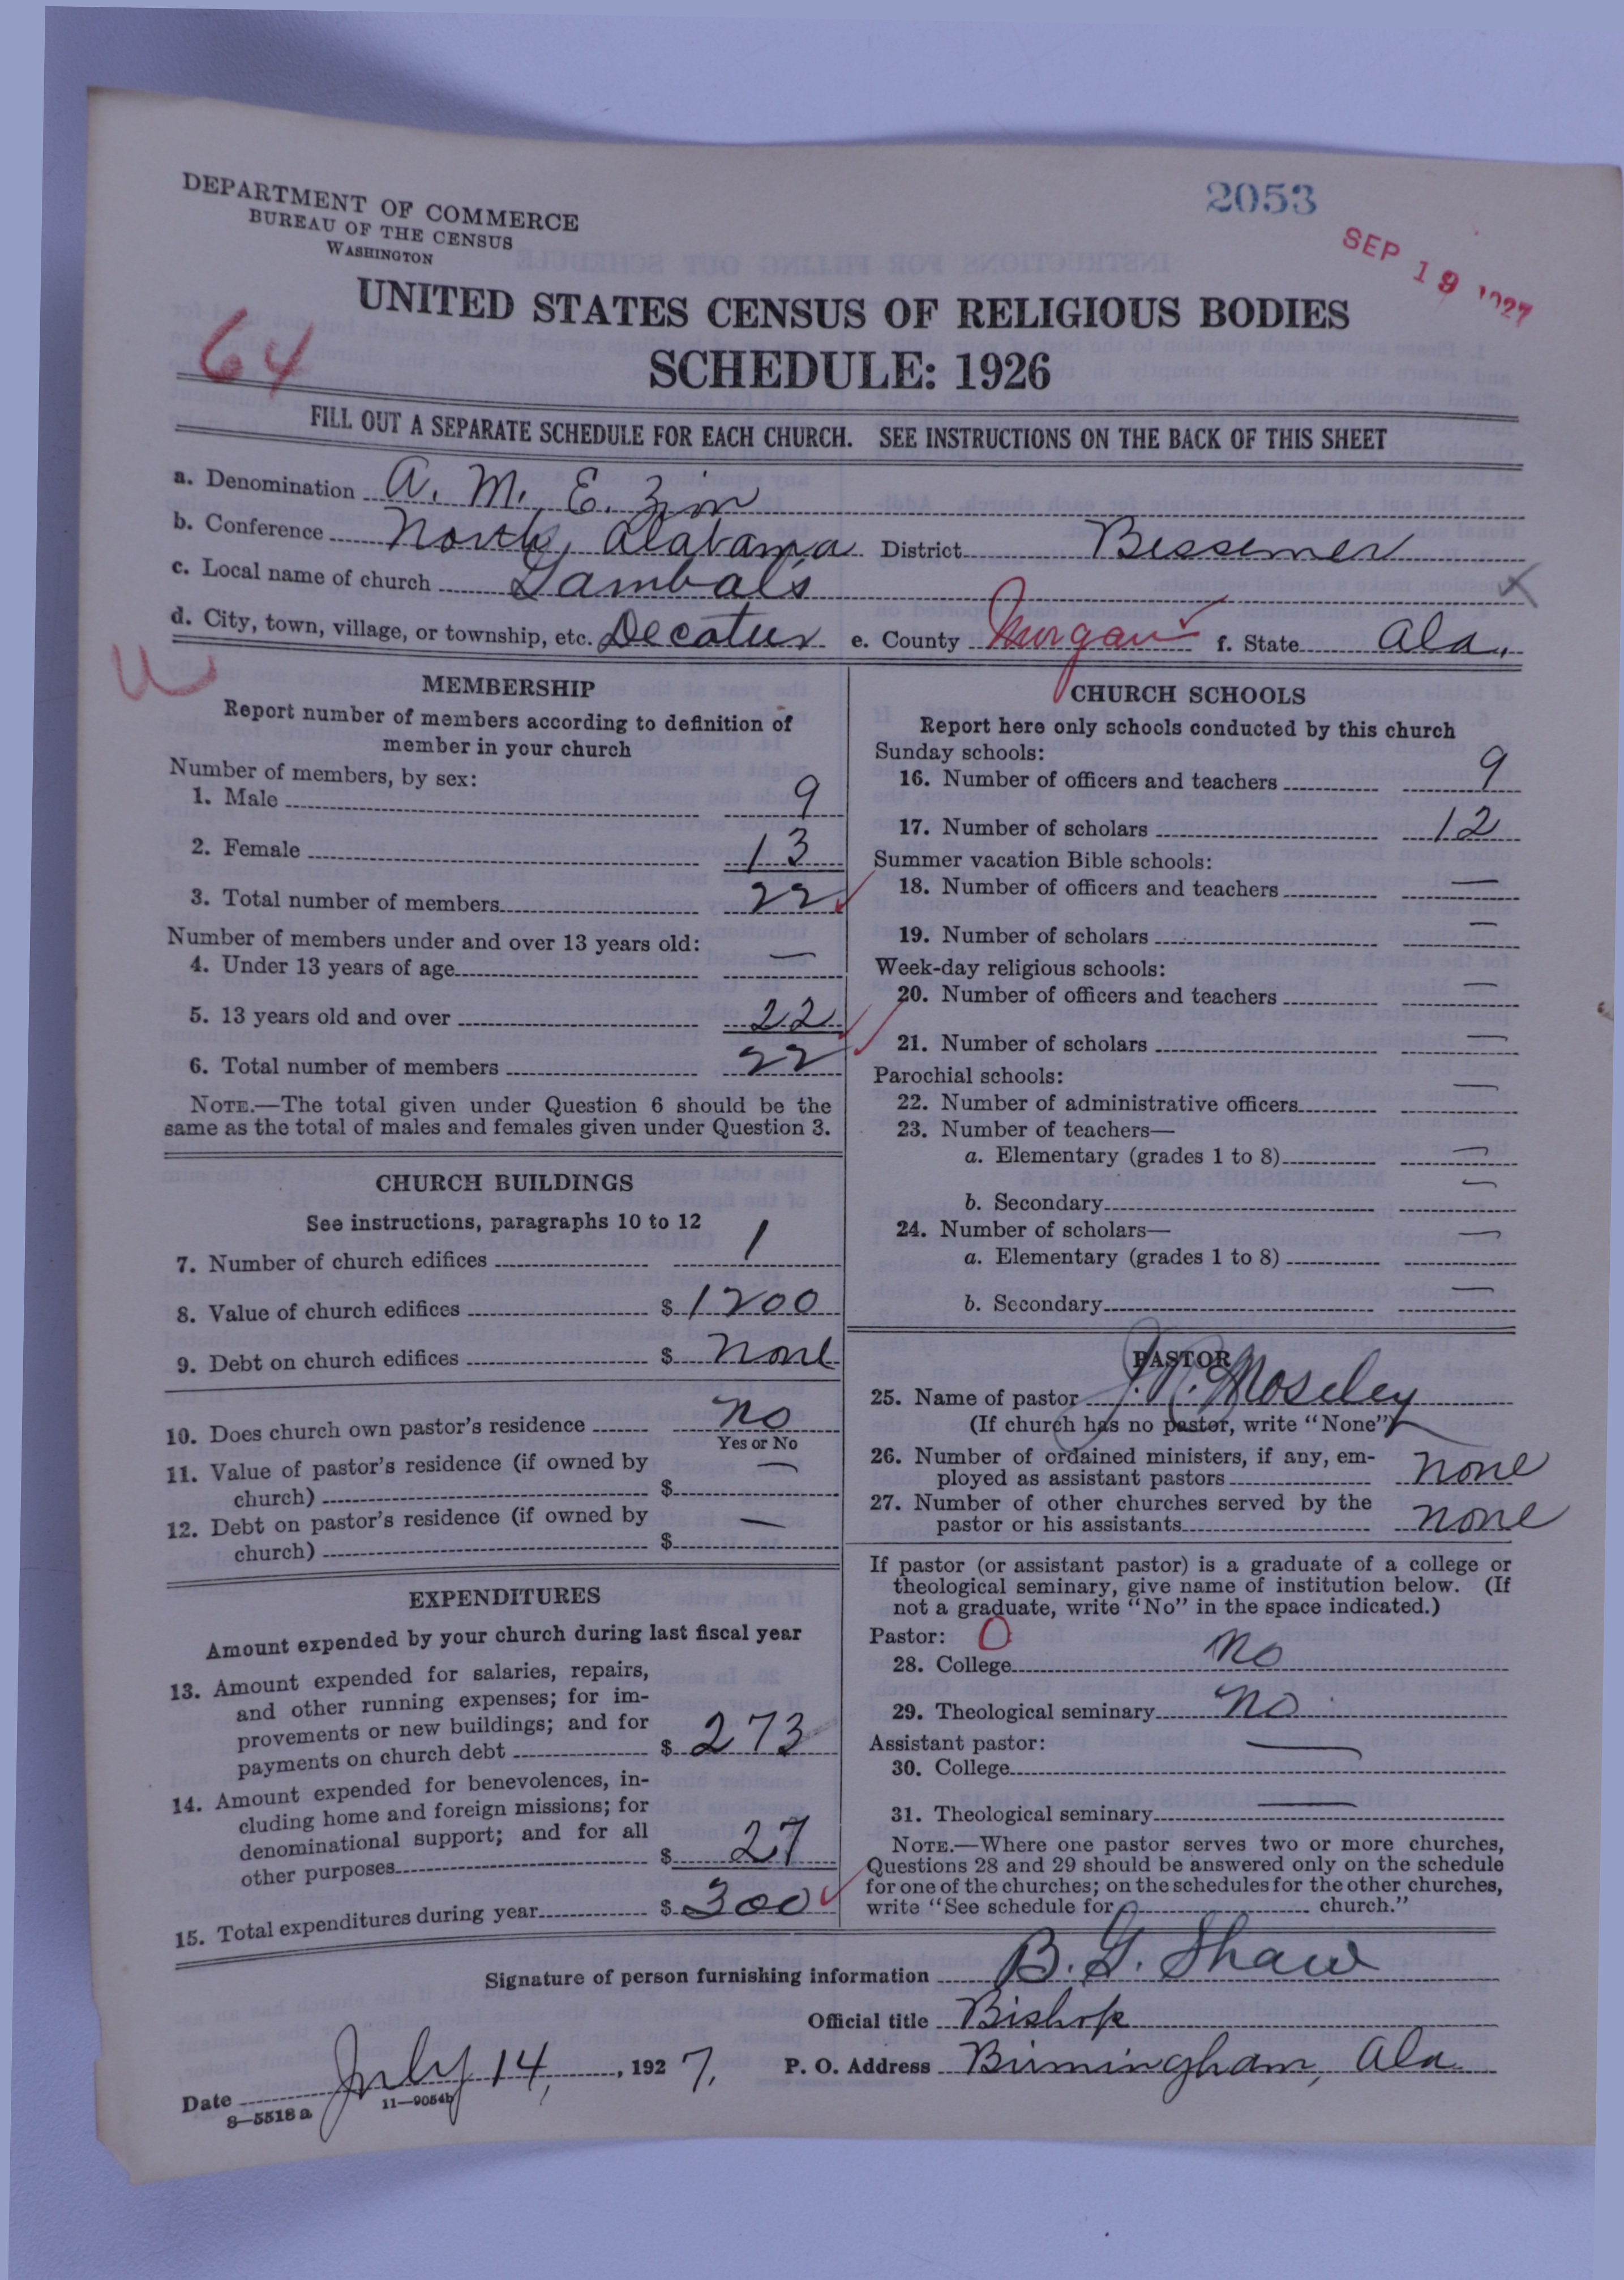 2053
SEP 19 1927
DEPARTMENT OF COMMERCE
BUREAU OF THE CENSUS
WASHINGTON
UNITED STATES CENSUS OF RELIGIOUS BODIES
SCHEDULE: 1926
64
FILL OUT A SEPARATE SCHEDULE FOR EACH CHURCH. SEE INSTRUCTIONS ON THE BACK OF THIS SHEET
a. Denomination A. M. E. Zion
b. Conference North Alabama District Bessemer
c. Local name of church Gambal's
d. City, town, village, or township, etc. Decatur e. County Morgan f. State Ala.
U
MEMBERSHIP
Report number of members according to definition of
member in your church
Number of members, by sex:
1. Male 9
2. Female 13
3. Total number of members 22
Number of members under and over 13 years old:
4. Under 13 years of age —
5. 13 years old and over 22
6. Total number of members 22
NOTE.—The total given under Question 6 should be the
same as the total of males and females given under Question 3.
CHURCH BUILDINGS
See instructions, paragraphs 10 to 12
7. Number of church edifices 1
8. Value of church edifices $ 1200
9. Debt on church edifices $ none
10. Does church own pastor's residence no
Yes or No
11. Value of pastor's residence (if owned by
church) $ —
12. Debt on pastor's residence (if owned by
church) $ —
EXPENDITURES
Amount expended by your church during last fiscal year
13. Amount expended for salaries, repairs,
and other running expenses; for im-
provements or new buildings; and for
payments on church debt $ 273
14. Amount expended for benevolences, in-
cluding home and foreign missions; for
denominational support; and for all
other purposes $ 27
15. Total expenditures during year $ 300
CHURCH SCHOOLS
Report here only schools conducted by this church
Sunday schools:
16. Number of officers and teachers 9
17. Number of scholars 12
Summer vacation Bible schools:
18. Number of officers and teachers —
19. Number of scholars —
Week-day religious schools:
20. Number of officers and teachers —
21. Number of scholars —
Parochial schools:
22. Number of administrative officers —
23. Number of teachers—
a. Elementary (grades 1 to 8) —
b. Secondary —
24. Number of scholars—
a. Elementary (grades 1 to 8) —
b. Secondary —
PASTOR
25. Name of pastor J. R. Moseley
(If church has no pastor, write "None")
26. Number of ordained ministers, if any, em-
ployed as assistant pastors none
27. Number of other churches served by the
pastor or his assistants none
If pastor (or assistant pastor) is a graduate of a college or
theological seminary, give name of institution below. (If
not a graduate, write "No" in the space indicated.)
Pastor: 0
28. College no
29. Theological seminary no
Assistant pastor:
30. College —
31. Theological seminary —
NOTE.—Where one pastor serves two or more churches,
Questions 28 and 29 should be answered only on the schedule
for one of the churches; on the schedules for the other churches,
write "See schedule for church."
Signature of person furnishing information B. G. Shaw
Official title Bishop
Date July 14, 1927. P. O. Address Birmingham, Ala.
8—5518 a 11—9054b